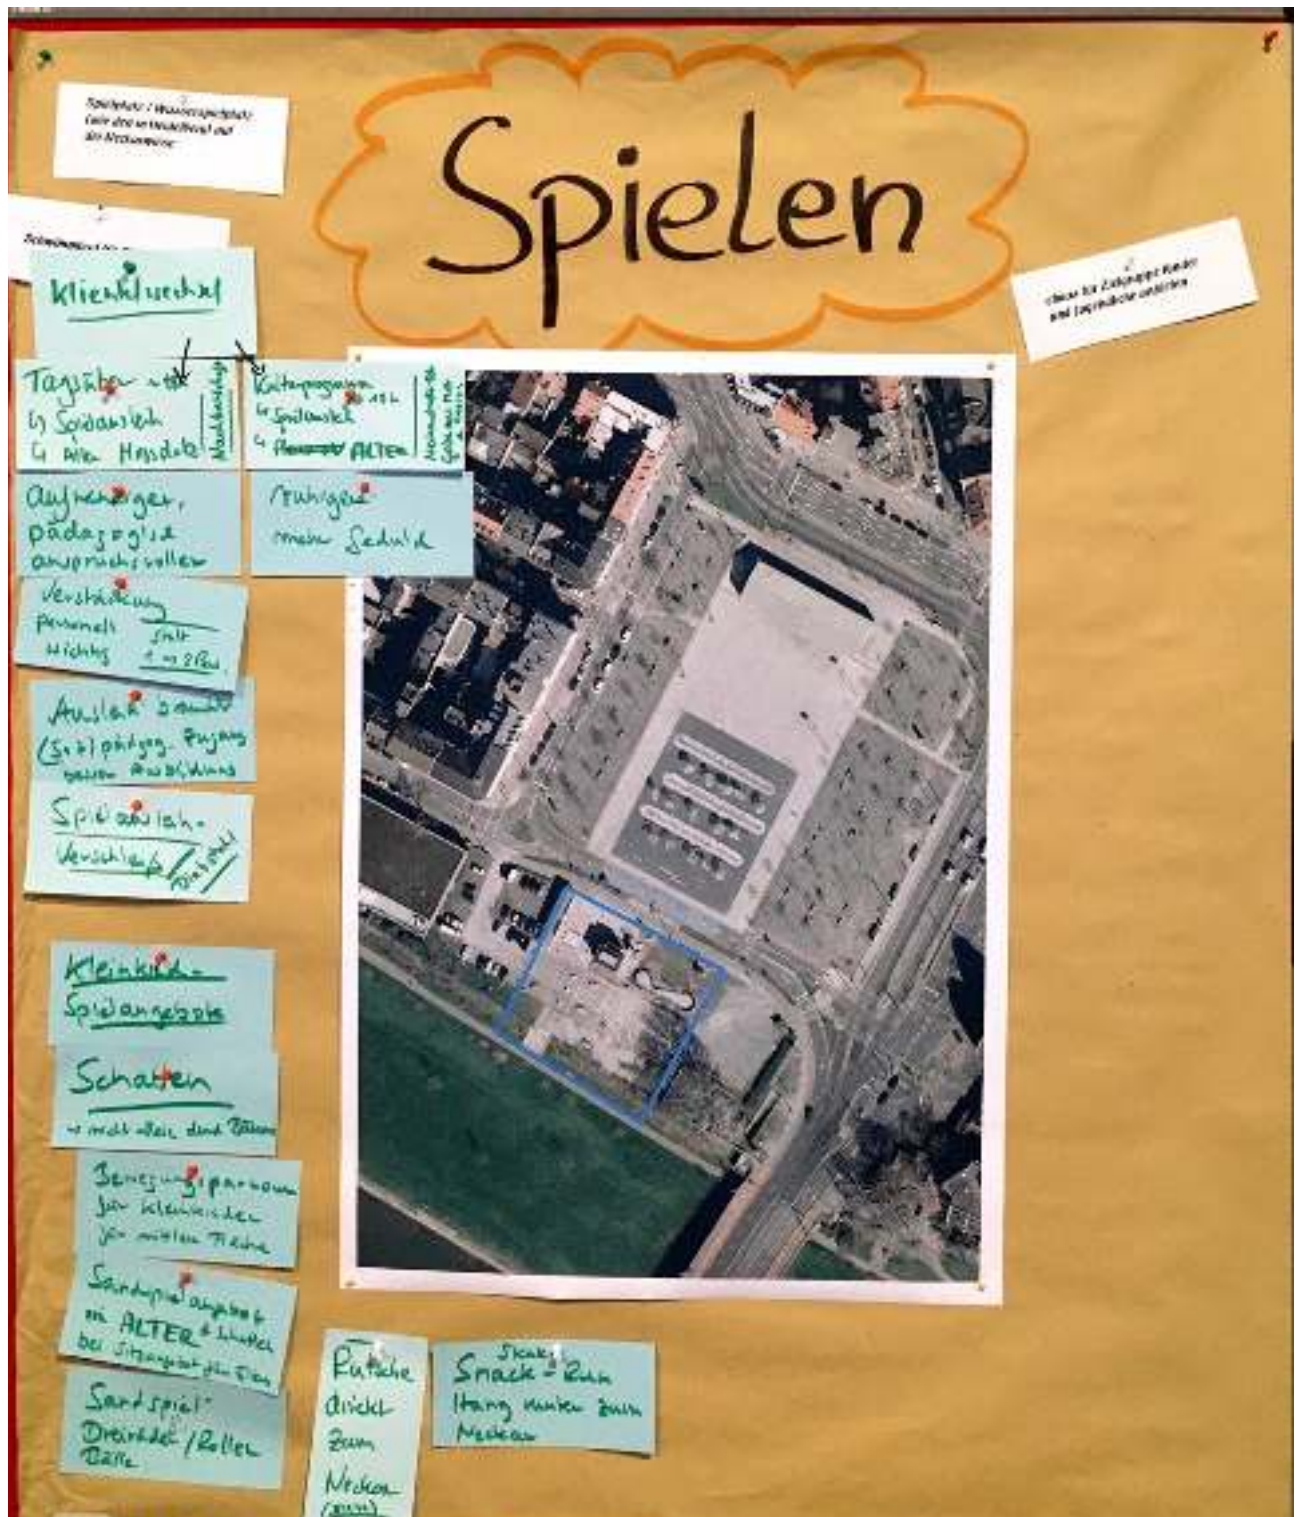 Spielplatz / Wasserspielplatz
(wie den in Heidelberg auf
der Neckarwiese
Spielen
etwas für Zielgruppe Kinder
und Jugendliche anbieten
Klientelwechsel
Tagsüber
↳ Spielausleih
↳ Alter Messplatz
Kulturprogramm
↳ Spielausleih
↳ ALTER
aufwendiger,
pädagogisch
anspruchsvoller
ruhiger
mehr Geduld
Verstärkung
personell
wichtig
statt
1 → 2 Pers.
Ausleih braucht
(Soz)pädagog. Zugang
Spielausleih-
Verschleiß / Diebstahl
Kleinkind-
Spielangebote
Schatten
→ nicht allein durch Bäume
Bewegungsparcours
für Kleinkinder
für mittlere Fläche
Sandspielangebot
im ALTER + Schatten
bei Sitzangebot für Eltern
Sandspiel
Dreiräder / Roller
Bälle
Rutsche
direkt
zum
Neckar
Snack - Run
Hang runter zum
Neckar